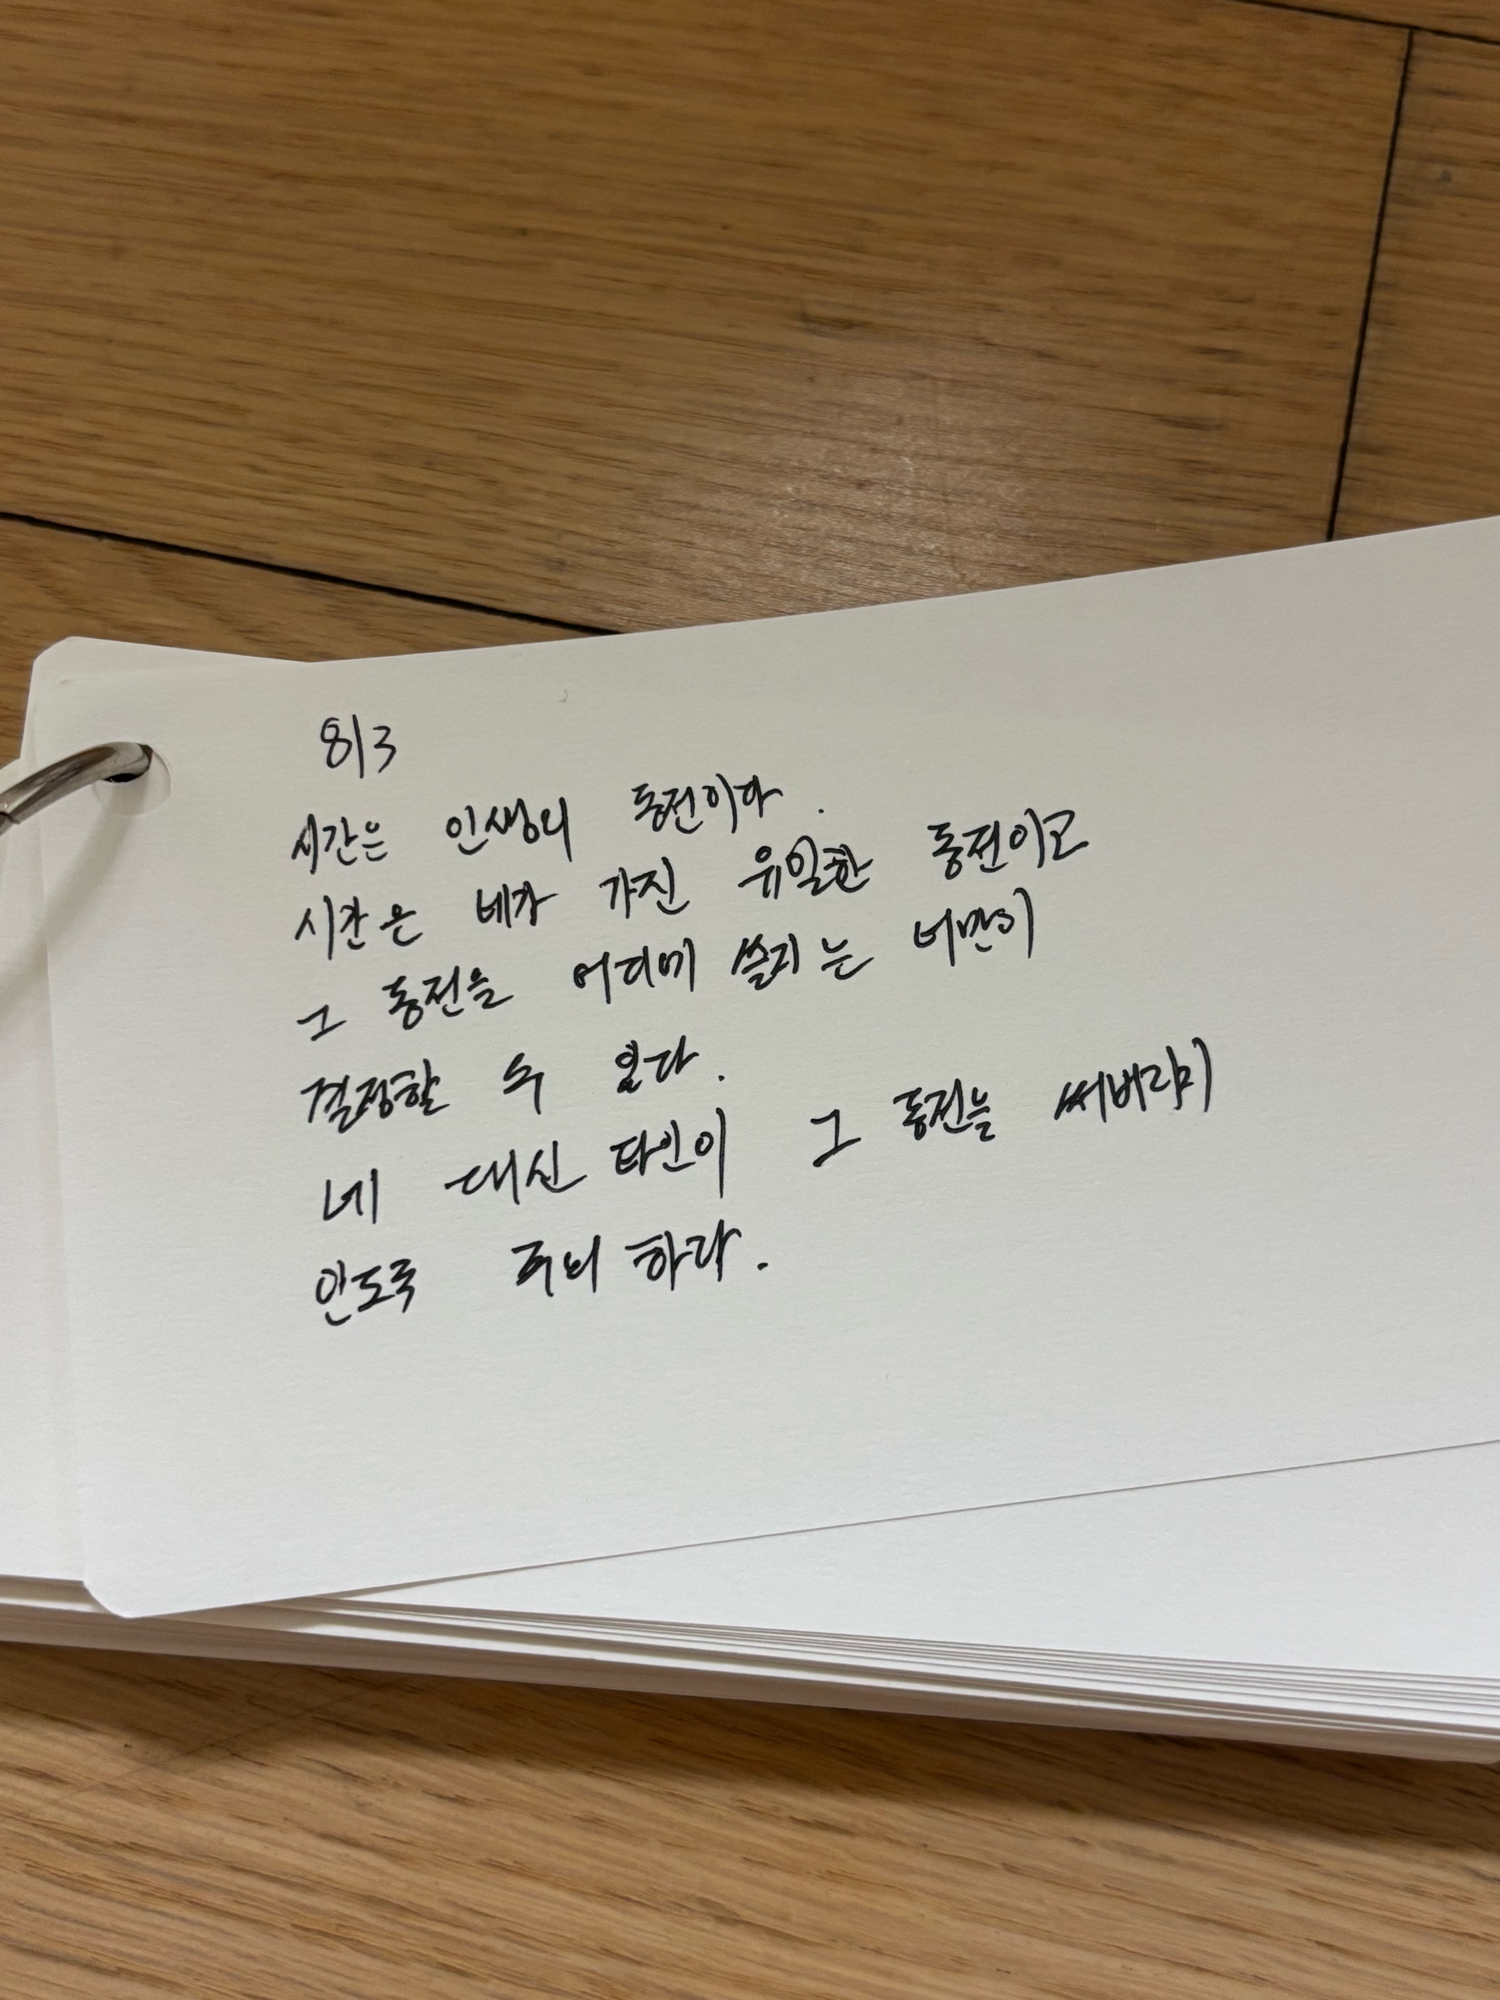 8/3
시간은 인생의 동전이다.
시간은 네가 가진 유일한 동전이고
그 동전을 어디에 쓸지는 너만이
결정할 수 있다.
네 대신 타인이 그 동전을 써버리지
않도록 주의 하라.